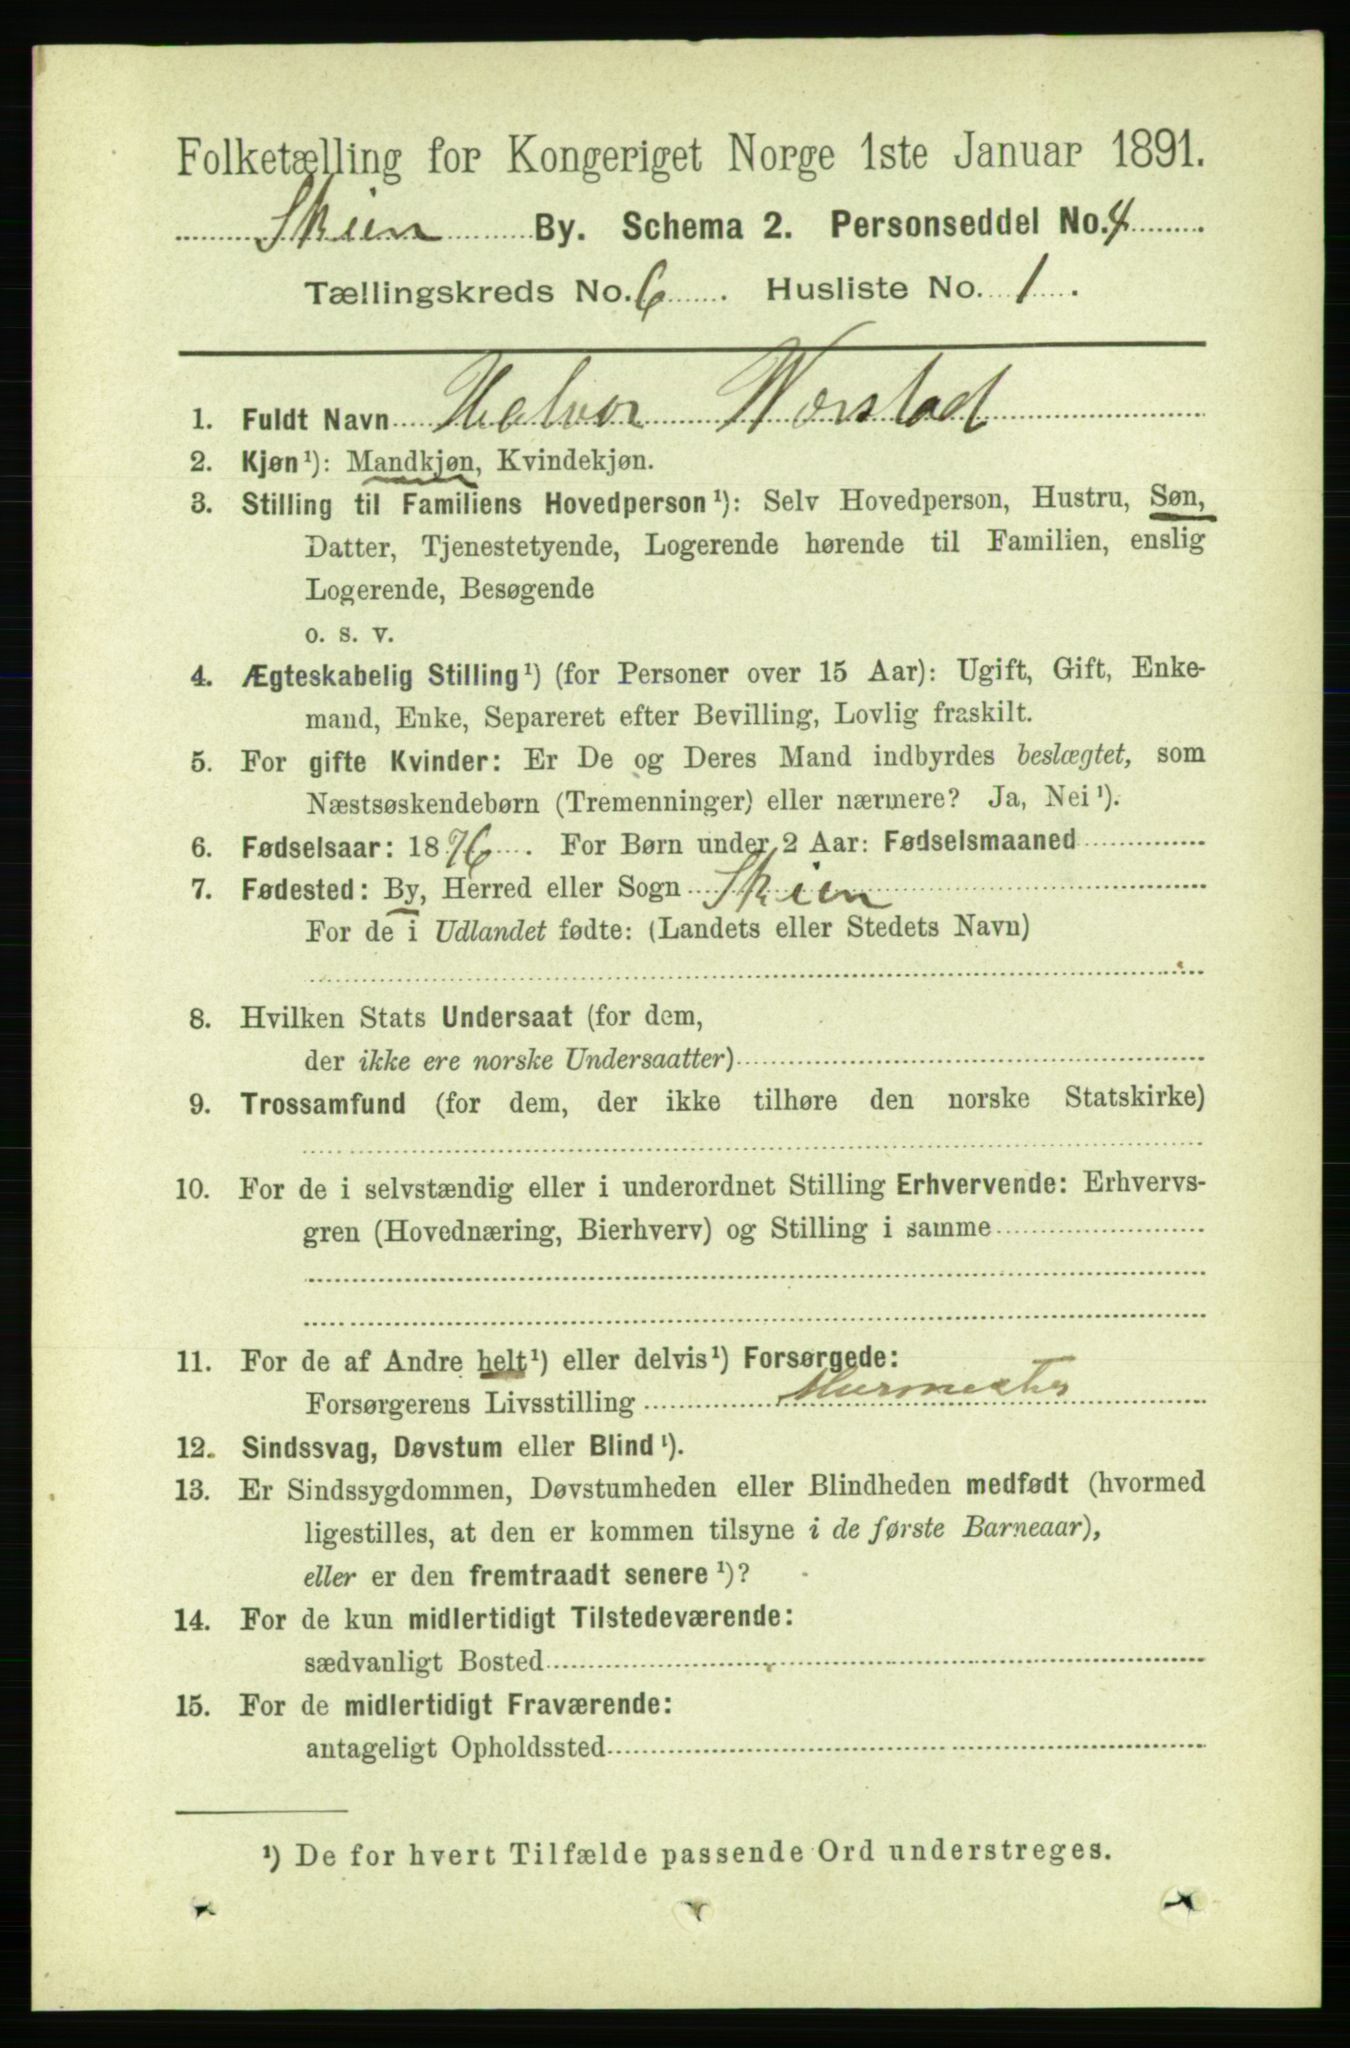 Folketælling for Kongeriget Norge 1ste Januar 1891.
Skien By. Schema 2. Personseddel No. 4
Tællingskreds No. 6. Husliste No. 1.
1. Fuldt Navn Halvor Norstad
2. Kjøn¹): Mandkjøn, Kvindekjøn.
3. Stilling til Familiens Hovedperson¹): Selv Hovedperson, Hustru, Søn,
Datter, Tjenestetyende, Logerende hørende til Familien, enslig
Logerende, Besøgende
o. s. v.
4. Ægteskabelig Stilling¹) (for Personer over 15 Aar): Ugift, Gift, Enke-
mand, Enke, Separeret efter Bevilling, Lovlig fraskilt.
5. For gifte Kvinder: Er De og Deres Mand indbyrdes beslægtet, som
Næstsøskendebørn (Tremenninger) eller nærmere? Ja, Nei¹).
6. Fødselsaar: 1876. For Børn under 2 Aar: Fødselsmaaned
7. Fødested: By, Herred eller Sogn Skien
For de i Udlandet fødte: (Landets eller Stedets Navn)
8. Hvilken Stats Undersaat (for dem,
der ikke ere norske Undersaatter)
9. Trossamfund (for dem, der ikke tilhøre den norske Statskirke)
10. For de i selvstændig eller i underordnet Stilling Erhvervende: Erhvervs-
gren (Hovednæring, Bierhverv) og Stilling i samme
11. For de af Andre helt¹) eller delvis¹) Forsørgede:
Forsørgerens Livsstilling Murmester
12. Sindssvag, Døvstum eller Blind¹).
13. Er Sindssygdommen, Døvstumheden eller Blindheden medfødt (hvormed
ligestilles, at den er kommen tilsyne i de første Barneaar),
eller er den fremtraadt senere¹)?
14. For de kun midlertidigt Tilstedeværende:
sædvanligt Bosted
15. For de midlertidigt Fraværende:
antageligt Opholdssted
¹) De for hvert Tilfælde passende Ord understreges.